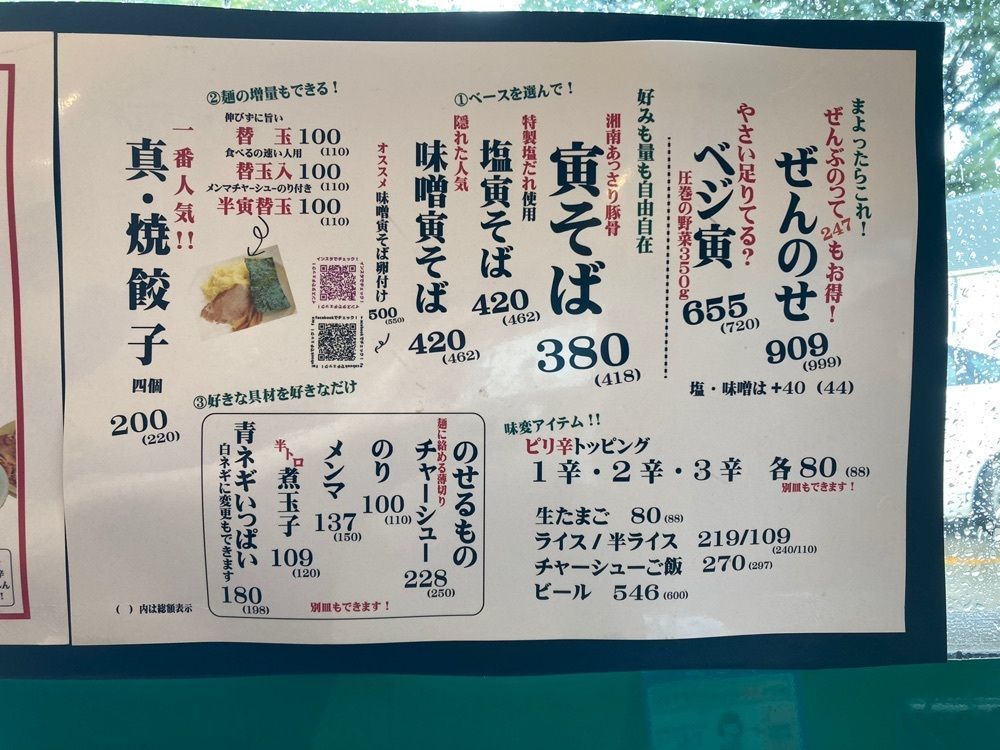 まよったらこれ!
ぜんぶのって247もお得!
ぜんのせ
909
(999)
やさい足りてる?
ベジ寅
圧巻の野菜350g
655
(720)
塩・味噌は+40 (44)
好みも量も自由自在
①ベースを選んで!
湘南あっさり豚骨
寅そば
380
(418)
特製塩だれ使用
塩寅そば
420
(462)
隠れた人気
味噌寅そば
420
(462)
オススメ 味噌寅そば卵付け
500
(550)
②麺の増量もできる!
伸びずに旨い
替 玉 100
(110)
食べるの速い人用
替玉入 100
(110)
メンマチャーシューのり付き
半寅替玉 100
(110)
インスタでチェック!
facebookでチェック!
一番人気!!
真・焼餃子
四個
200
(220)
③好きな具材を好きなだけ
のせるもの
麺に絡める薄切り
チャーシュー
228
(250)
のり
100
(110)
メンマ
137
(150)
半トロ
煮玉子
109
(120)
青ネギいっぱい
白ネギに変更もできます
180
(198)
別皿もできます!
味変アイテム!!
ピリ辛トッピング
1辛・2辛・3辛 各80 (88)
別皿もできます!
生たまご 80 (88)
ライス / 半ライス 219/109
(240/110)
チャーシューご飯 270 (297)
ビール 546 (600)
( ) 内は総額表示